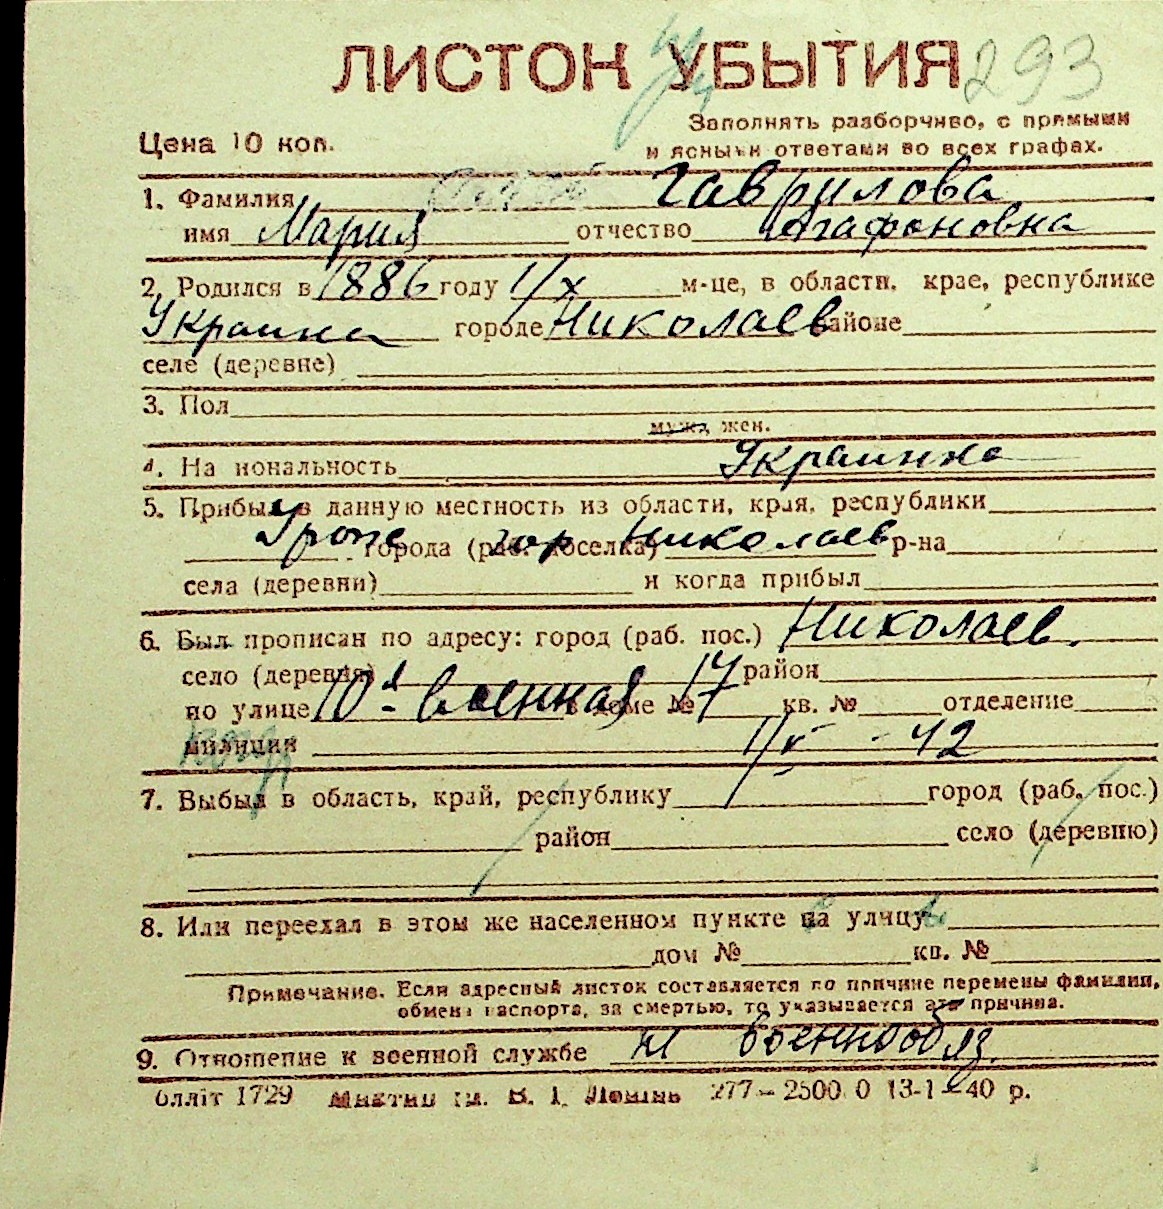 ЛИСТОК УБЫТИЯ 293
Цена 10 коп.
Заполнять разборчиво, с прямыми
и ясными ответами во всех графах.
1. Фамилия Гаврилова
имя Мария отчество Агафоновна
2. Родился в 1886 году 1/X м-це, в области, крае, республике
Украина городе Николаев районе
селе (деревне)
3. Пол
муж., жен.
4. Национальность Украинка
5. Прибыл в данную местность из области, края, республики
города (раб. поселка) гор Николаев р-на
села (деревни) и когда прибыл
6. Был прописан по адресу: город (раб. пос.) Николаев.
село (деревня) район
по улице 10я Военная в доме № 17 кв. № отделение
милиции 1/V - 42
7. Выбыл в область, край, республику город (раб. пос.)
район село (деревню)
8. Или переехал в этом же населенном пункте на улицу
дом № кв. №
Примечание. Если адресный листок составляется по причине перемены фамилии,
обмена паспорта, за смертью, то указывается эта причина.
9. Отношение к военной службе н военнообяз.
блліт 1729 І. 277 – 2500 0 13-1-40 р.